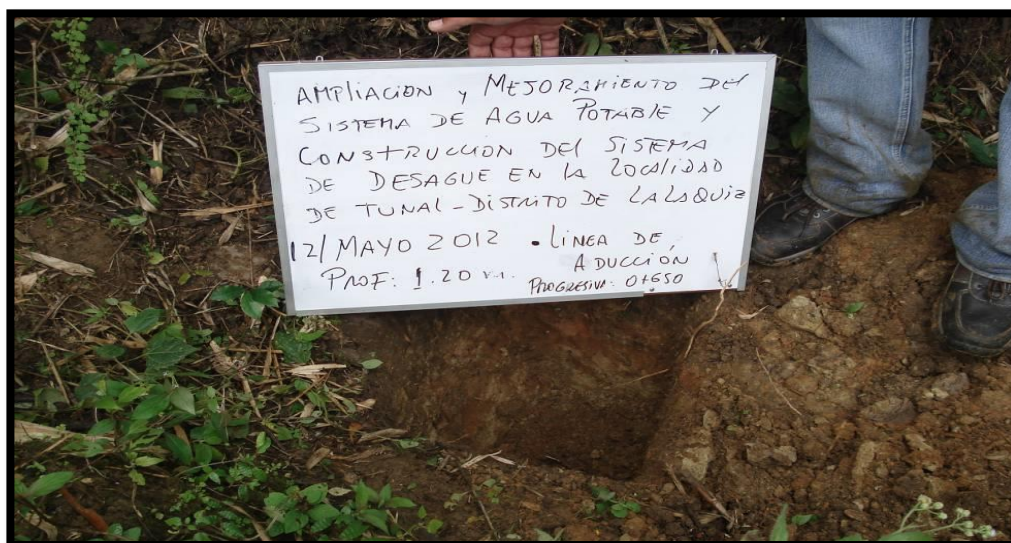 AMPLIACION y MEJORAMIENTO DEl
SISTEMA DE AGUA POTABLE Y
CONSTRUCCIÓN DEl SISTEMA
DE DESAGUE EN LA LOCALIDAD
DE TUNAL-DISTRITO DE LALAQUIZ
12/MAYO 2012 • LINEA DE
ADUCCIÓN
PROF: 1.20 m. PROGRESIVA: 0+650